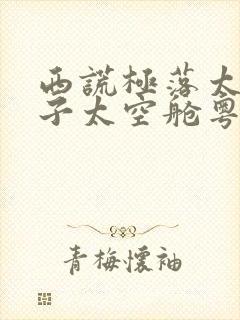 西謊極落太
子太空舱粤
青梅懷袖